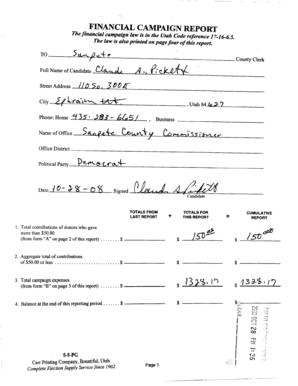 FINANCIAL CAMPAIGN REPORT
The financial campaign law is in the Utah Code reference 17-16-6.5.
The law is also printed on page four of this report.
TO Sanpete County Clerk
Full Name of Candidate Claude A. Pickett
Street Address 110 So. 300 E
City Ephraim Ut , Utah 84627
Phone: Home 435-283-6651 , Business
Name of Office Sanpete County Commissioner
Office District
Political Party Democrat
Date 10-28-08 Signed Claude A Pickett
Candidate
TOTALS FROM LAST REPORT + TOTALS FOR THIS REPORT = CUMULATIVE REPORT
1. Total contributions of donors who gave
more than $50.00
(from form "A" on page 2 of this report) $ $ 150.00 $ 150.00
2. Aggregate total of contributions
of $50.00 or less $ $ $
3. Total campaign expenses
(from form "B" on page 3 of this report) $ $ 1328.17 $ 1328.17
4. Balance at the end of this reporting period $ $
OCT 28
5-5-PG
Carr Printing Company, Bountiful, Utah
Complete Election Supply Service Since 1902
Page 1